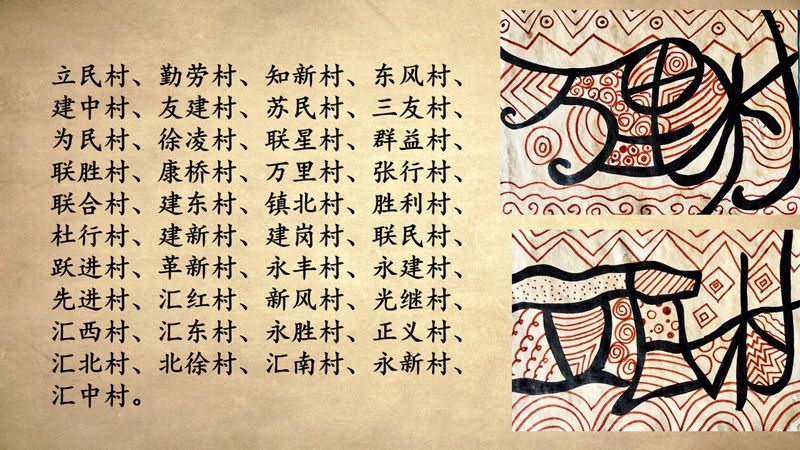 立民村、勤劳村、知新村、东风村、
建中村、友建村、苏民村、三友村、
为民村、徐凌村、联星村、群益村、
联胜村、康桥村、万里村、张行村、
联合村、建东村、镇北村、胜利村、
杜行村、建新村、建岗村、联民村、
跃进村、革新村、永丰村、永建村、
先进村、汇红村、新风村、光继村、
汇西村、汇东村、永胜村、正义村、
汇北村、北徐村、汇南村、永新村、
汇中村。